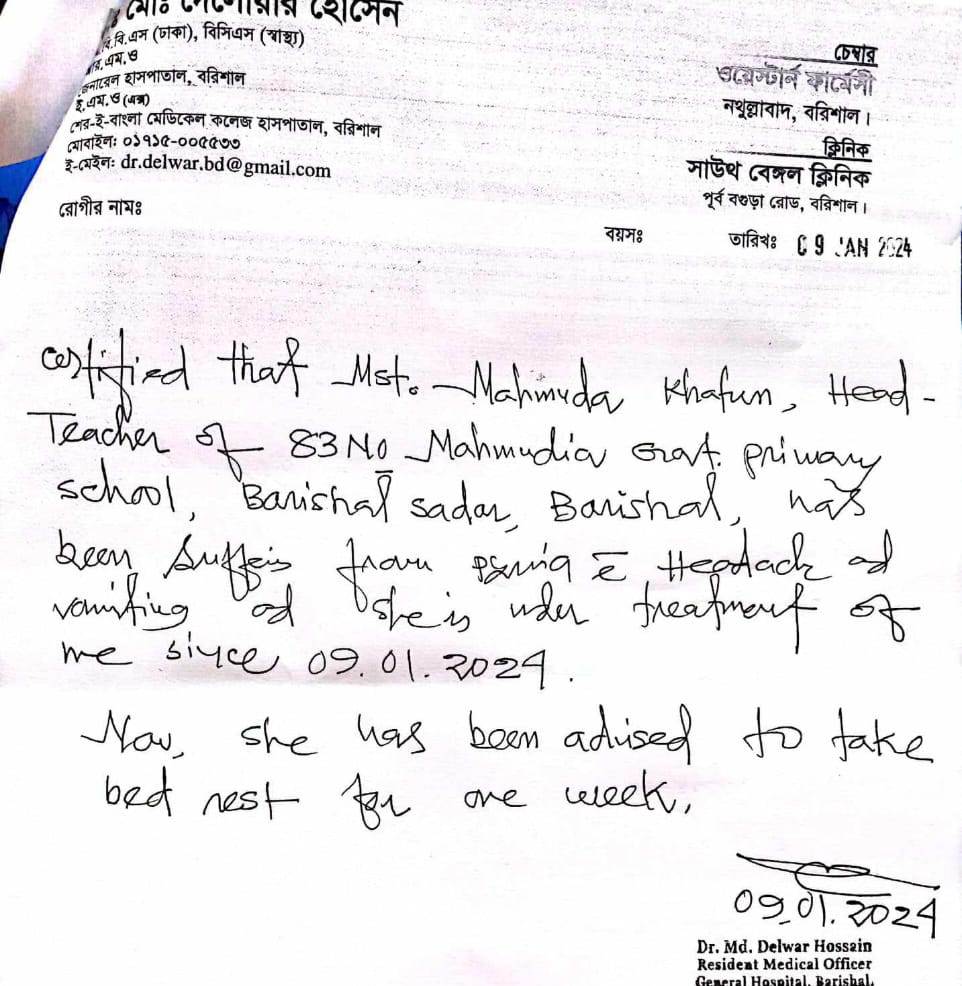 মোঃ দেলোয়ার হোসেন
বি.বি.এস (ঢাকা), বিসিএস (স্বাস্থ্য)
আর.এম.ও
জেনারেল হাসপাতাল, বরিশাল
ই.এম.ও (এক্স)
শের-ই-বাংলা মেডিকেল কলেজ হাসপাতাল, বরিশাল
মোবাইলঃ ০১৭১৫-০০৫৫৩৩
ই-মেইলঃ dr.delwar.bd@gmail.com
চেম্বার
ওয়েস্টার্ন ফার্মেসী
নথুল্লাবাদ, বরিশাল।
ক্লিনিক
সাউথ বেঙ্গল ক্লিনিক
পূর্ব বগুড়া রোড, বরিশাল।
রোগীর নামঃ
বয়সঃ
তারিখঃ 09 JAN 2024
certified that Mst. Mahmuda Khatun, Head-
Teacher of 83 No Mahmudia Govt. primary
school, Barishal sadar, Barishal, has
been from c̄ Headach ad
vomiting ad she is under treatment of
me since 09.01.2024.
Now, she has been advised to take
bed rest for one week.
09.01.2024
Dr. Md. Delwar Hossain
Resident Medical Officer
General Hospital, Barishal.